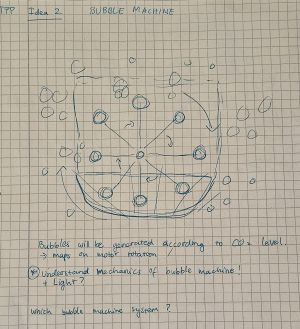 TPP Idea 2 BUBBLE MACHINE
Bubbles will be generated according to CO2 level.
→ maps on motor rotation
* Understand mechanics of bubble machine!
+ Light?
which bubble machine system?